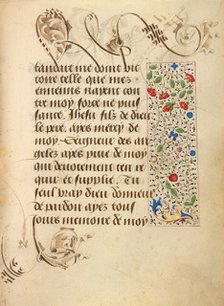 tandart me dont vic
toire telle que mes
ennemis nayent con
tre moy force ne puis
sance. Ihesu filz de dieu
le pere ayes mercy de
moy. Seigneur des an
gelez ayes pitie de moy
qui deuotement ten re
quier et supplie. Tu
seul vray dieu donneur
de pardon ayes tous
iours memoire de moy